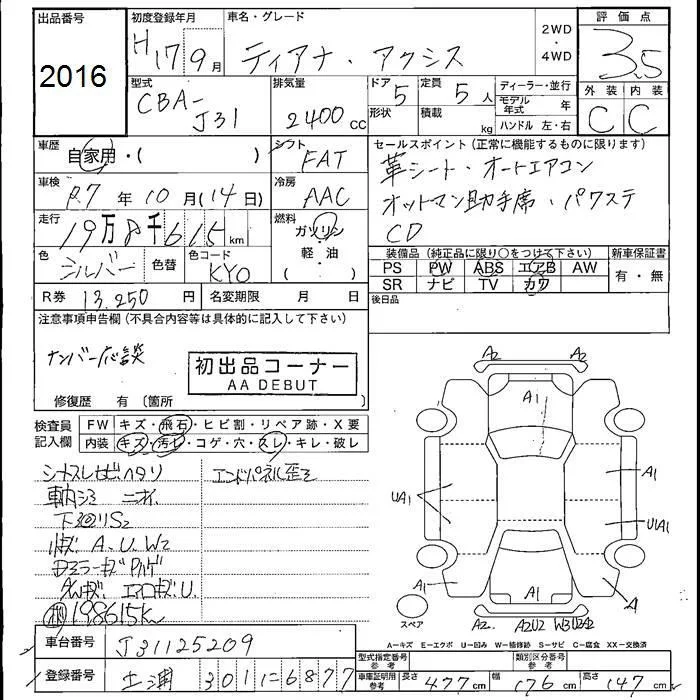 出品番号 初度登録年月 車名・グレード 評価点
2016 H17 9月 ティアナ・アクシス 2WD・4WD 3.5
型式 CBA-J31 排気量 2400cc ドア形状 5 定員 5人 積載 kg
ディーラー・並行
モデル年式 年
ハンドル 左・右
外装 内装
C C
車歴 自家用・( ) シフト FAT
セールスポイント(正常に機能するものに限ります)
革シート・オートエアコン
オットマン助手席・パワステ
CD
車検 R7年10月(14日) 冷房 AAC
走行 19万8千615km 燃料 ガソリン・軽油( )
色 シルバー 色替 色コード KY0
装備品(純正品に限り○をつけて下さい) 新車保証書
PS PW ABS エアB AW 有・無
SR ナビ TV カワ
R券 13,250円 名変期限 月 日
後日品
注意事項申告欄(不具合内容等は具体的に記入して下さい)
ナンバー応談
初出品コーナー
AA DEBUT
修復歴 有(箇所
検査員記入欄 FW キズ・飛石・ヒビ割・リペア跡・X要
内装 キズ・汚レ・コゲ・穴・スレ・キレ・破レ
シートスレ ヘタリ エンドパネル歪ミ
車内シミ ニオイ
下廻りS2
小キズ A.U.W2
Dミラーキズ
エアロキズ.U.
198615km
A2 A2
A1
UA1 A1
U1A1
A1 A1 A1
スペア A2 A2U2 W3U2A2
A−キズ E−エクボ U−凹み W−補修跡 S−サビ C−腐食 XX−交換済
車台番号 J31125209
登録番号 土浦 301 6877
型式指定番号 参考 類別区分番号 参考
車庫証明用 参考 長さ 477cm 幅 176cm 高さ 147cm